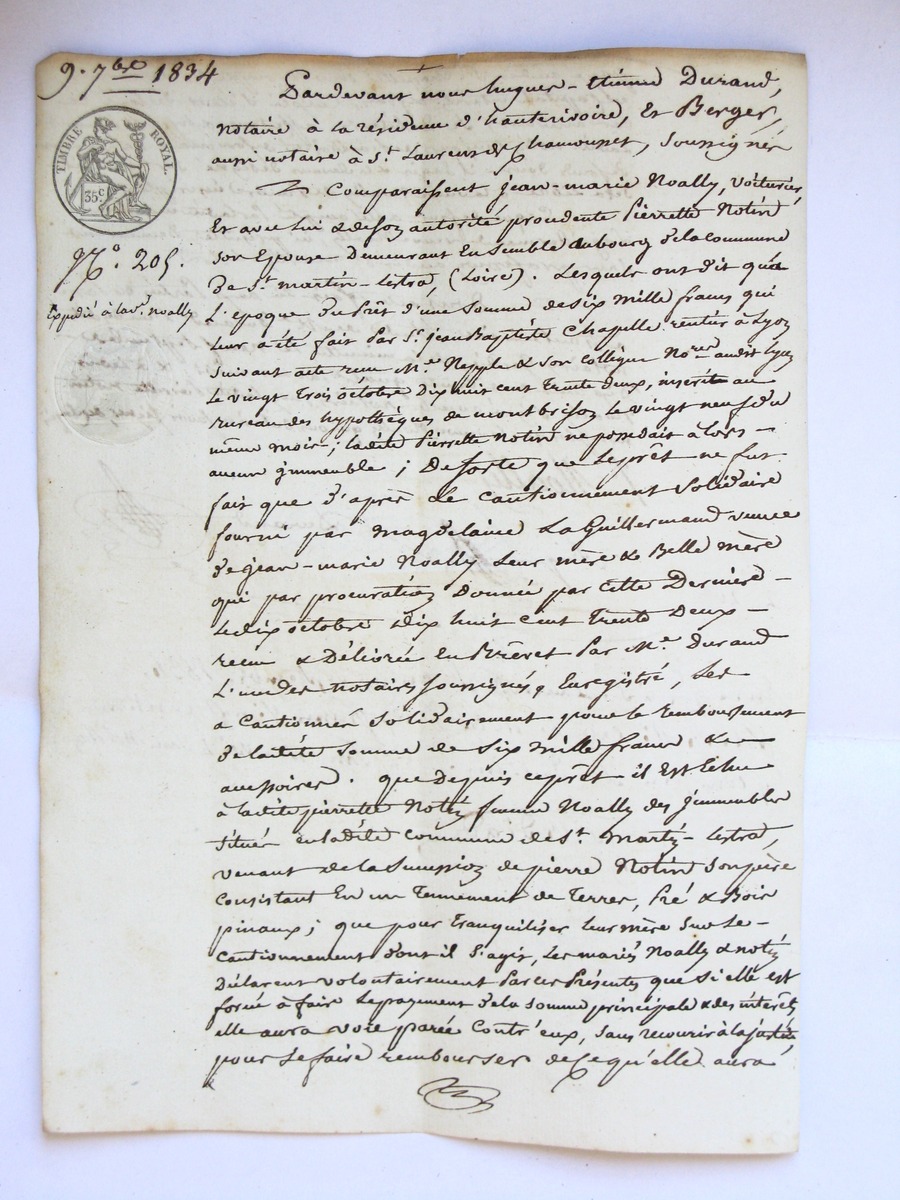 9. 7bre 1834
TIMBRE ROYAL.
35 c
N°. 205.
Expédié à la ve. Noally
Pardevant nous hugues-étienne Durand,
notaire à la résidence d'hauterivoire, Et Berger,
aussi notaire à St. Laurent de Chamousset, soussignés
Comparaissent jean-marie Noally, voiturier,
Et avec lui & de son autorité procedente Pierrette Notin
son Epouse Demeurant Ensemble au bourg de la commune
De St. martin-Lestra, (Loire). Lesquels ont dit qu'à
L'epoque Du Prêt d'une somme de six mille francs qui
leur a été fait Par Sr. jean Baptiste Chapelle rentier à Lyon
suivant acte recu Me. Nepple & son collègue Nores. audit Lyon
Le vingt Trois octobre Dix huit cent Trente deux, inscrite au
Bureau des hypothèques de montbrison Le vingt neuf du
même mois; ladite Pierrette Notin ne possedait alors
aucun jmmeuble; De sorte que le prêt ne fut
fait que D'après Le cautionnement solidaire
fourni par magdelaine La Guillermand veuve
de jean-marie Noally Leur mère & Belle mère
qui par procuration Donnée par Cette Dernière
Le Dix octobre Dix huit cent Trente Deux
recu & Délivrée En Brévet Par Me. Durand
L'un des notaires soussignés, Enregistré, Les
a Cautionnés solidairement pour le remboursement
de ladite somme de six mille francs & ses
accessoires. que Depuis ce prêt il Est Echu
à ladite pierrette Notin femme Noally des jmmeubles
situés en ladite commune de St. Martin-Lestra,
venant de la succession de pierre Notin son père
consistant En un Tennement de Terres, Pré & Bois
pinaux; que pour Tranquiliser leur mère sur Le
cautionnement dont il s'agit, Les mariés Noally & notin
Déclarent volontairement Par ces Présentes que si elle est
forcée à faire Le payement de la somme principale & des intérêts
elle aura voie parée contr'eux, sans recourir à la justice,
pour se faire rembourser de Ce qu'elle aura